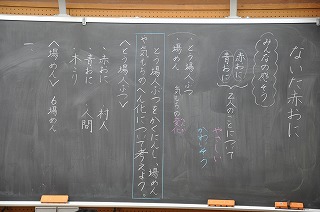 ないた赤おに
みんなの感そう
赤おに
青おに
2人のことについて
やさしい
かわいそう
・とう場人ぶつ
・場めん
気もちの変化
とう場人ぶつをかくにんし、場めん
や気もちのへん化について考えよう。
〈とう場人ぶつ〉
・赤おに
・青おに
・木こり
村人
・人間
〈場めん〉
6場めん
一